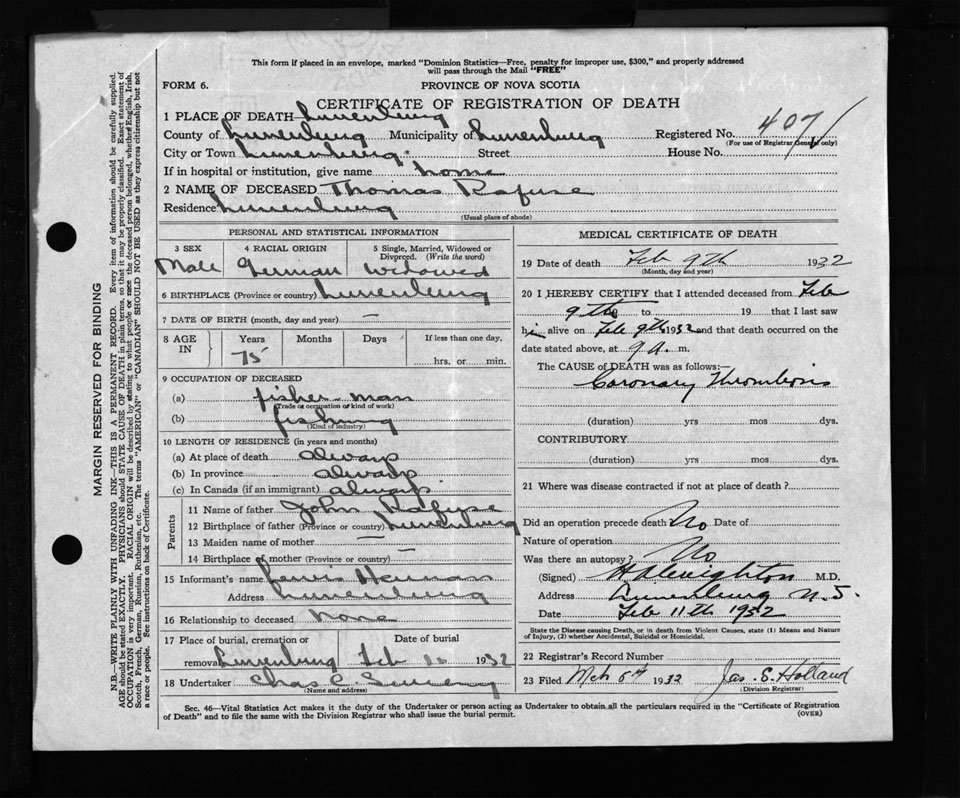 This form if placed in an envelope, marked "Dominion Statistics—Free, penalty for improper use, $300," and properly addressed
will pass through the Mail "FREE"
FORM 6. PROVINCE OF NOVA SCOTIA
CERTIFICATE OF REGISTRATION OF DEATH
1 PLACE OF DEATH Lunenburg
County of Lunenburg Municipality of Lunenburg Registered No. 407
(For use of Registrar General only)
City or Town Lunenburg Street House No.
If in hospital or institution, give name home
2 NAME OF DECEASED Thomas Rafuse
Residence Lunenburg
(Usual place of abode)
PERSONAL AND STATISTICAL INFORMATION
3 SEX 4 RACIAL ORIGIN 5 Single, Married, Widowed or
Divorced. (Write the word)
Male German Widowed
6 BIRTHPLACE (Province or country) Lunenburg
7 DATE OF BIRTH (month, day and year) —
8 AGE IN Years Months Days If less than one day,
75 hrs. or min.
9 OCCUPATION OF DECEASED
(a) fisher-man
(Trade or occupation or kind of work)
(b) fishing
(Kind of industry)
10 LENGTH OF RESIDENCE (in years and months)
(a) At place of death always
(b) In province always
(c) In Canada (if an immigrant) always
Parents
11 Name of father John Rafuse
12 Birthplace of father (Province or country) Lunenburg
13 Maiden name of mother —
14 Birthplace of mother (Province or country) —
15 Informant's name Lewis Herman
Address Lunenburg
16 Relationship to deceased None
17 Place of burial, cremation or Date of burial
removal Lunenburg Feb 1932
18 Undertaker Chas C
(Name and address)
MEDICAL CERTIFICATE OF DEATH
19 Date of death Feb 9th 1932
(Month, day and year)
20 I HEREBY CERTIFY that I attended deceased from Feb
9th to 19 that I last saw
him alive on Feb 9th 1932 and that death occurred on the
date stated above, at 9 a. m.
The CAUSE of DEATH was as follows:—
Coronary Thrombosis
(duration) yrs mos. dys.
CONTRIBUTORY
(duration) yrs mos. dys.
21 Where was disease contracted if not at place of death?
Did an operation precede death No Date of
Nature of operation
Was there an autopsy? No
(Signed) M.D.
Address Lunenburg N.S.
Date Feb 11th 1932
State the Disease causing Death, or in death from Violent Causes, state (1) Means and Nature
of Injury, (2) whether Accidental, Suicidal or Homicidal.
22 Registrar's Record Number
23 Filed Mch 5th 1932 Jas. S. Holland
(Division Registrar)
Sec. 46—Vital Statistics Act makes it the duty of the Undertaker or person acting as Undertaker to obtain all the particulars required in the "Certificate of Registration
of Death" and to file the same with the Division Registrar who shall issue the burial permit. (OVER)
MARGIN RESERVED FOR BINDING
N.B.—WRITE PLAINLY WITH UNFADING INK—THIS IS A PERMANENT RECORD. Every item of information should be carefully supplied.
AGE should be stated EXACTLY. PHYSICIANS should STATE CAUSE OF DEATH in plain terms, so that it may be properly classified. Exact statement of
OCCUPATION is very important. RACIAL ORIGIN will be described by stating to what people or race the deceased person belonged, whether English, Irish,
Scotch, French, German, Russian, Ruthenian, etc. The terms "AMERICAN" or "CANADIAN" SHOULD NOT BE USED as they express citizenship but not
a race or people. See instructions on back of Certificate.